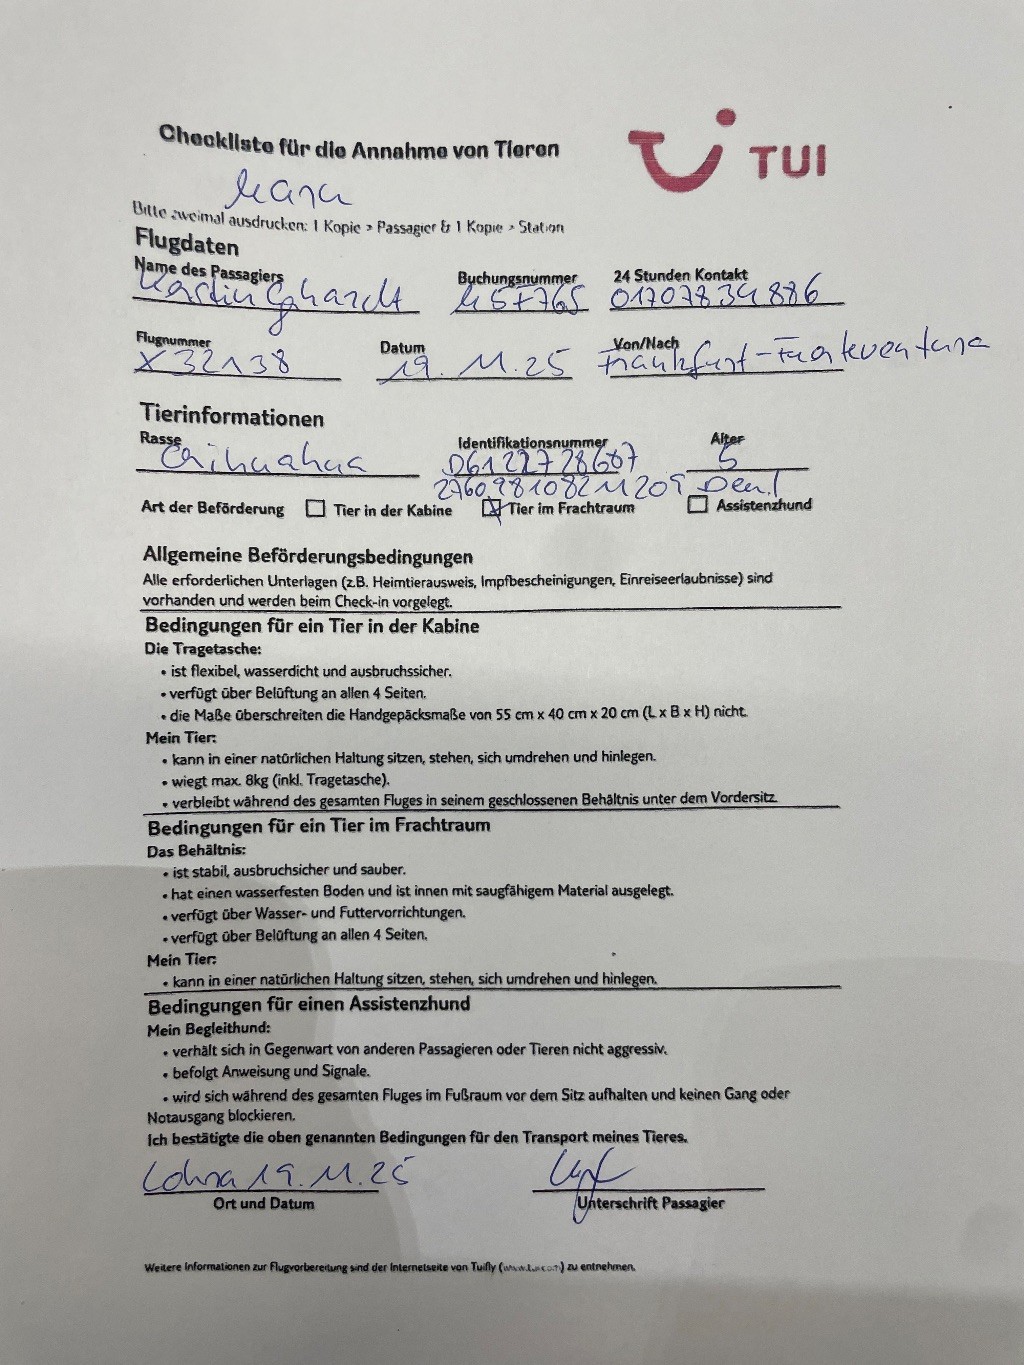 Checkliste für die Annahme von Tieren
TUI
Bitte zweimal ausdrucken: 1 Kopie > Passagier & 1 Kopie > Station
Flugdaten
Name des Passagiers Buchungsnummer 24 Stunden Kontakt
Kerstin 01707834886
Flugnummer Datum Von/Nach
X32138 19.11.25 Frankfurt-Fuerteventura
Tierinformationen
Rasse Identifikationsnummer Alter
Chihuahua 5
276098108211209
Art der Beförderung Tier in der Kabine Tier im Frachtraum Assistenzhund
Allgemeine Beförderungsbedingungen
Alle erforderlichen Unterlagen (z.B. Heimtierausweis, Impfbescheinigungen, Einreiseerlaubnisse) sind
vorhanden und werden beim Check-in vorgelegt.
Bedingungen für ein Tier in der Kabine
Die Tragetasche:
• ist flexibel, wasserdicht und ausbruchssicher.
• verfügt über Belüftung an allen 4 Seiten.
• die Maße überschreiten die Handgepäcksmaße von 55 cm x 40 cm x 20 cm (L x B x H) nicht.
Mein Tier:
• kann in einer natürlichen Haltung sitzen, stehen, sich umdrehen und hinlegen.
• wiegt max. 8kg (inkl. Tragetasche).
• verbleibt während des gesamten Fluges in seinem geschlossenen Behältnis unter dem Vordersitz.
Bedingungen für ein Tier im Frachtraum
Das Behältnis:
• ist stabil, ausbruchsicher und sauber.
• hat einen wasserfesten Boden und ist innen mit saugfähigem Material ausgelegt.
• verfügt über Wasser- und Futtervorrichtungen.
• verfügt über Belüftung an allen 4 Seiten.
Mein Tier:
• kann in einer natürlichen Haltung sitzen, stehen, sich umdrehen und hinlegen.
Bedingungen für einen Assistenzhund
Mein Begleithund:
• verhält sich in Gegenwart von anderen Passagieren oder Tieren nicht aggressiv.
• befolgt Anweisung und Signale.
• wird sich während des gesamten Fluges im Fußraum vor dem Sitz aufhalten und keinen Gang oder
Notausgang blockieren.
Ich bestätigte die oben genannten Bedingungen für den Transport meines Tieres.
19.11.25
Ort und Datum Unterschrift Passagier
Weitere Informationen zur Flugvorbereitung sind der Internetseite von Tuifly () zu entnehmen.